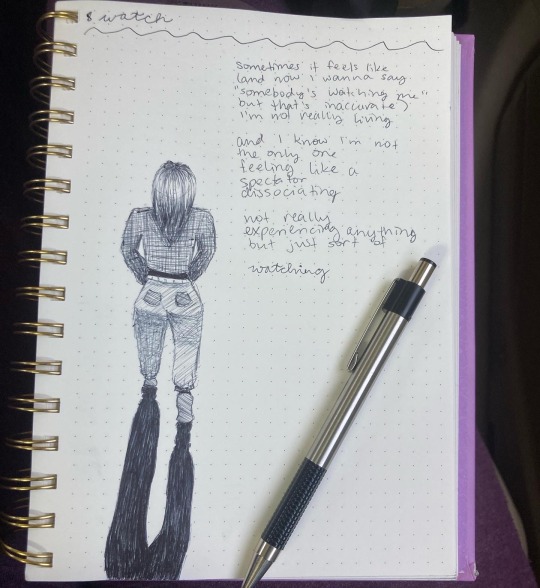 8 watch
sometimes it feels like
(and now i wanna say
"somebody's watching me"
but that's inaccurate)
i'm not really living
and i know i'm not
the only one
feeling like a
spectator
dissociating
not really
experiencing anything
but just sort of
watching